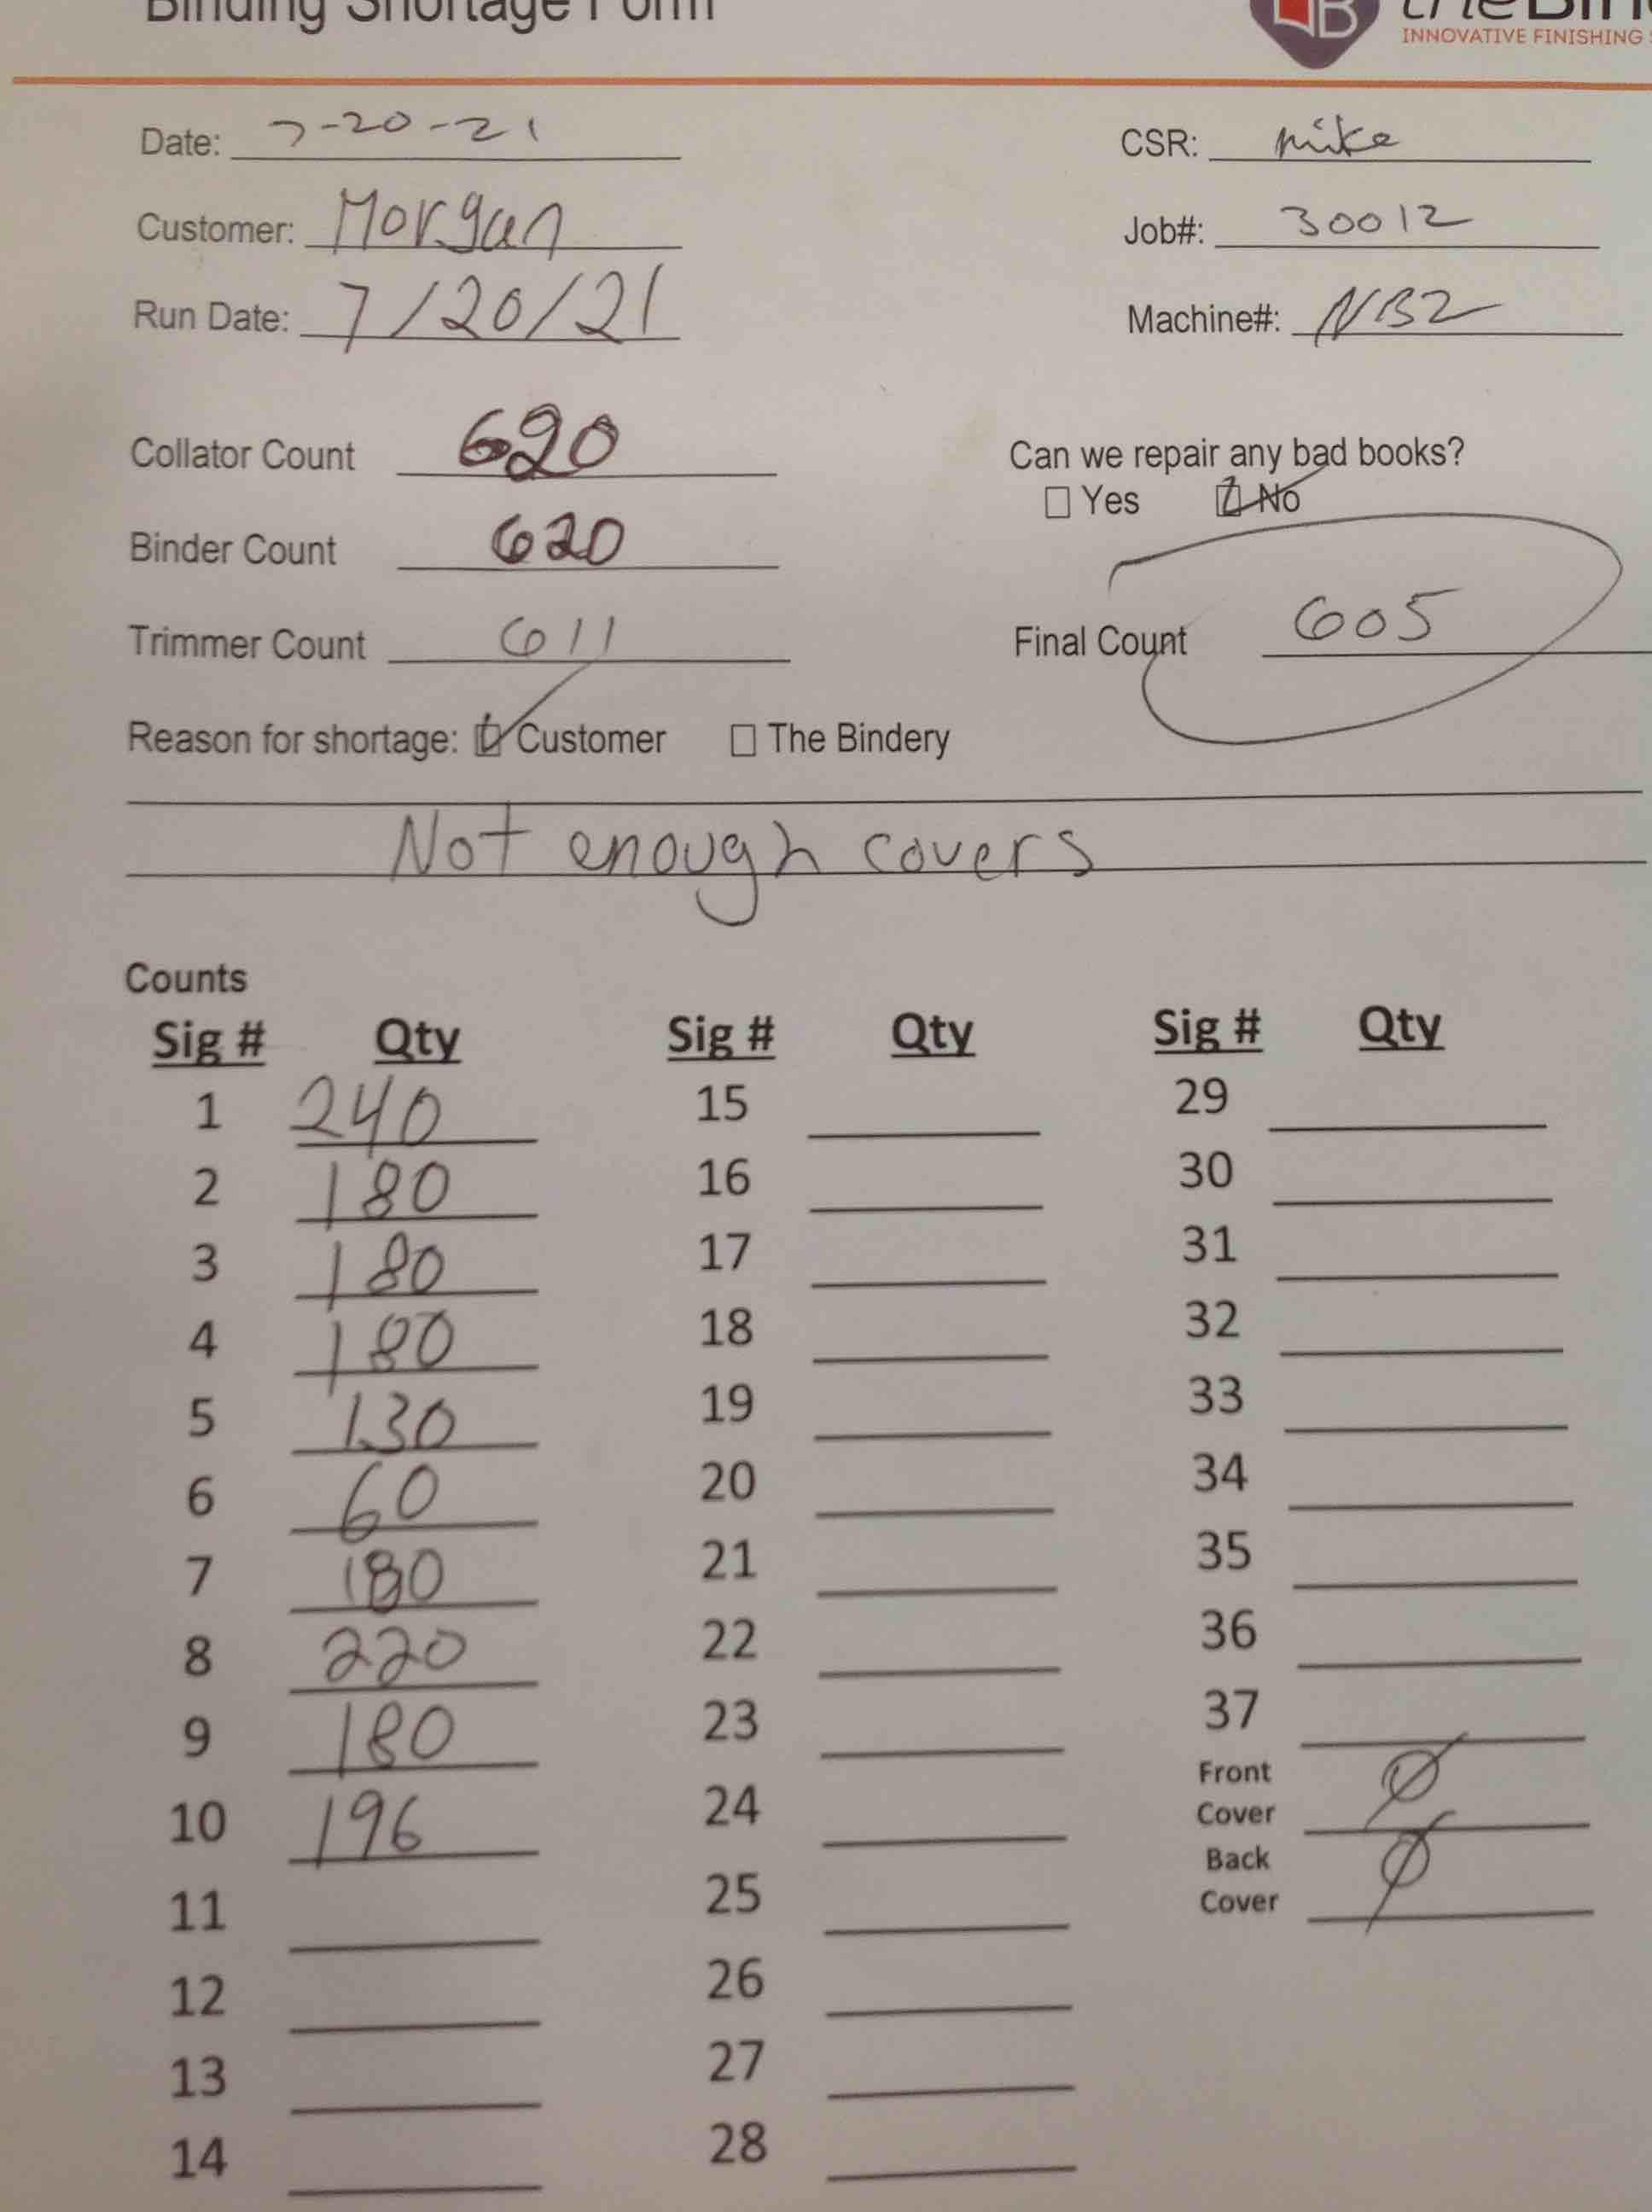 Binding Shortage Form
INNOVATIVE FINISHING
Date: 7-20-21 CSR: mike
Customer: Morgan Job#: 30012
Run Date: 7/20/21 Machine#: NB2
Collator Count 620 Can we repair any bad books?
☐ Yes ☑ No
Binder Count 620
Trimmer Count 611 Final Count 605
Reason for shortage: ☑ Customer ☐ The Bindery
Not enough covers
Counts
Sig # Qty Sig # Qty Sig # Qty
1 240 15 29
2 180 16 30
3 180 17 31
4 180 18 32
5 130 19 33
6 60 20 34
7 180 21 35
8 220 22 36
9 180 23 37
10 196 24 Front Cover Ø
11 25 Back Cover Ø
12 26
13 27
14 28